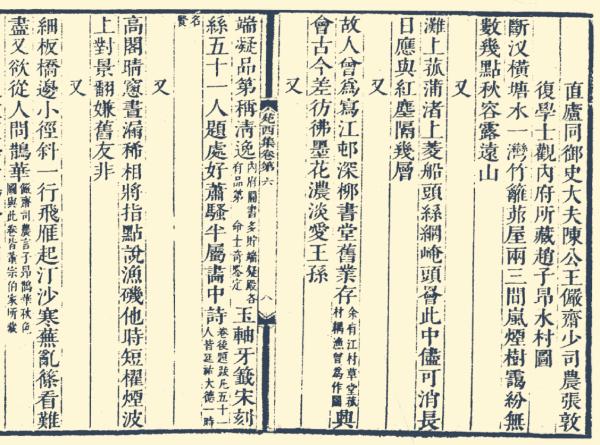 直廬同御史大夫陳公王儼齋少司農張敦
復學士觀內府所藏趙子昂水村圖
斷汊橫塘水一灣竹籬茆屋兩三間嵐煙樹靄紛無
數幾點秋容露遠山
又
灘上菰蒲渚上菱船頭絲網崦頭罾此中儘可消長
日應與紅塵隔幾層
又
故人曾爲寫江邨深柳書堂舊業存余有江村草堂菰村耦漁曾爲作圖興
會古今差彷彿墨花濃淡愛王孫
又
苑西集卷第六
八
端凝品弟稱淸逸內府圖書多貯端凝殿各有品第 命士奇鑒定玉軸牙籤宋刻
絲五十一人題處好蕭騷半屬畵中詩卷後題跋凡五十一人皆延祐大德一時
名賢
又
高閣晴窻晝漏稀相將指點說漁磯他時短櫂煙波
上對景翻嫌舊友非
又
細板橋邊小徑斜一行飛雁起汀沙寒蕪亂篠看難
盡又欲從人問鵲華儼齋司農言子昂鵲華秋色圖與此卷皆董宗伯家所藏